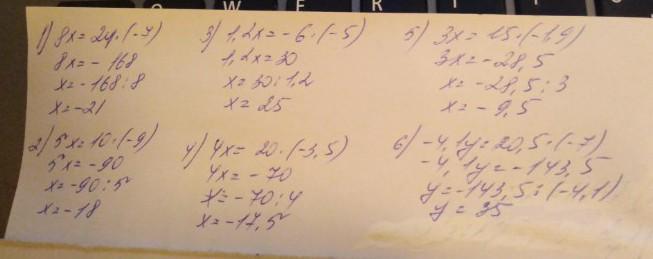 W E R T
1) 8x = 24 · (-7)
8x = - 168
x = -168 : 8
x = -21
2) 5x = 10 · (-9)
5x = -90
x = -90 : 5
x = -18
3) 1,2x = -6 · (-5)
1,2x = 30
x = 30 : 1,2
x = 25
4) 4x = 20 · (-3,5)
4x = - 70
x = -70 : 4
x = -17,5
5) 3x = 15 · (-1,9)
3x = -28,5
x = -28,5 : 3
x = -9,5
6) -4,1y = 20,5 · (-7)
-4,1y = -143,5
y = -143,5 : (-4,1)
y = 35